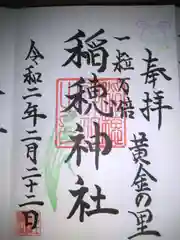 奉拝
黄金の里
一粒万倍
稲穂神社
令和二年二月二十二日